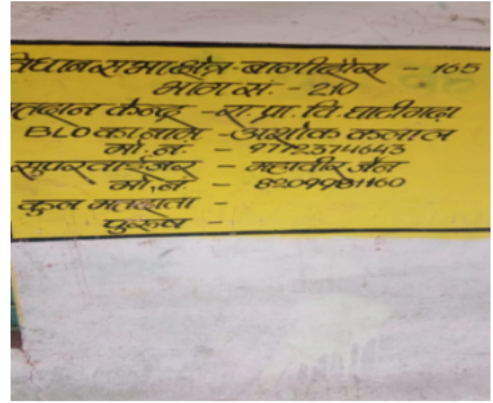 विधानसभा क्षेत्र - बागीदौरा - 165
भाग सं. - 210
मतदान केन्द्र - रा. प्रा. वि. घाटीगढा
BLO का नाम - अशोक कलाल
मो. न. - 9772374643
सुपरवाईजर - महावीर जैन
मो. न. - 8209981160
कुल मतदाता -
पुरुष -